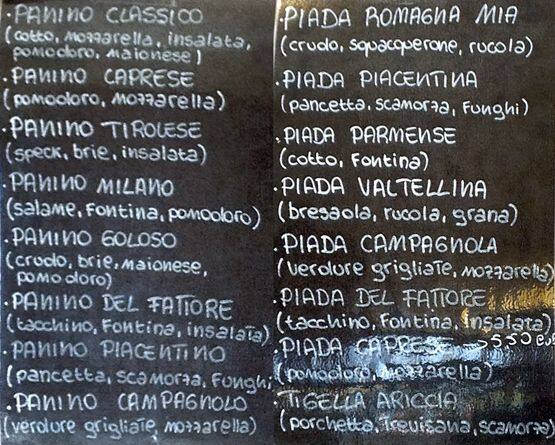 . PANINO CLASSICO
(cotto, mozzarella, insalata,
pomodoro, maionese)
. PANINO CAPRESE
(pomodoro, mozzarella)
. PANINO TIROLESE
(speck, brie, insalata)
. PANINO MILANO
(salame, Fontina, pomodoro)
. PANINO GOLOSO
(crudo, brie, maionese,
pomodoro)
. PANINO DEL FATTORE
(tacchino, Fontina, insalata)
. PANINO PIACENTINO
(pancetta, scamorza, Funghi
. PANINO CAMPAGNOLO
(verdure grigliate, mozzarella)
. PIADA ROMAGNA MIA
(crudo, squacquerone, rucola)
. PIADA PIACENTINA
(pancetta, scamorza, Funghi)
. PIADA PARMENSE
(cotto, Fontina)
. PIADA VALTELLINA
(bresaola, rucola, grana)
. PIADA CAMPAGNOLA
(verdure grigliate, mozzarella)
. PIADA DEL FATTORE
(tacchino, Fontina, Insalata)
. PIADA CAPRESE
(pomodoro, mozzarella)
. TIGELLA ARICCIA
(porchetta, Trevisana, scamorza)